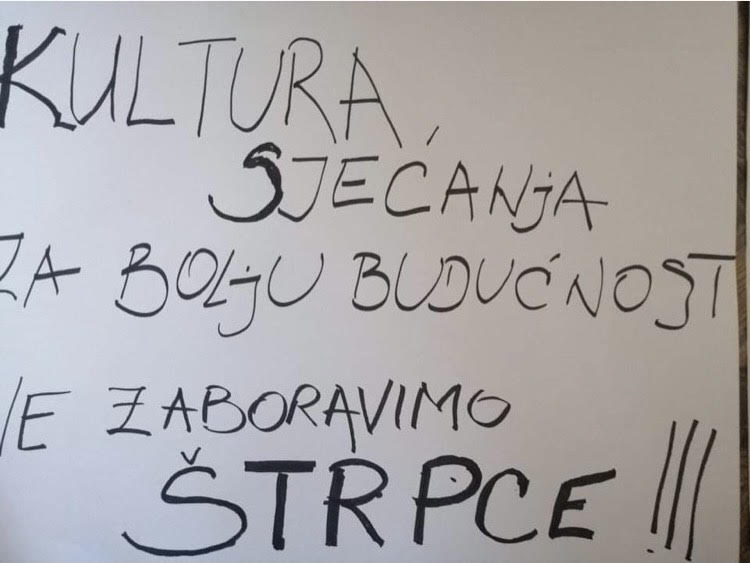 KULTURA
SJEĆANjA
ZA BOLjU BUDUĆNOST
NE ZABORAVIMO
ŠTRPCE !!!